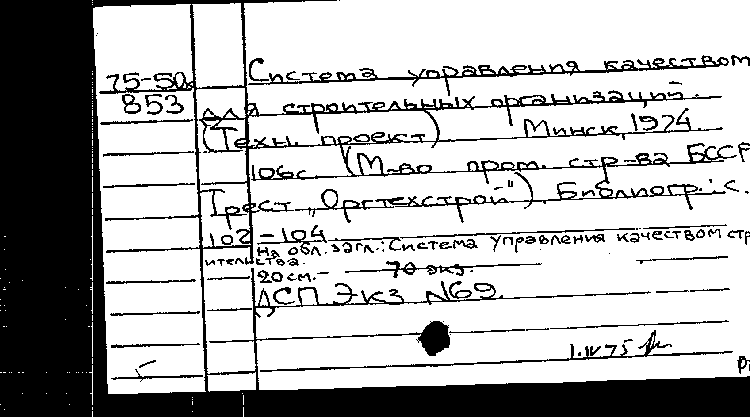 75-50
853
Система управления качеством
для строительных организаций.
(Техн. проект) Минск, 1974.
106с. (М-во пром. стр-ва БССР
Трест „Оргтехстрой"). Библиогр.: с.
102-104
На обл. загл.: Система управления качеством стр
ительства.
20 см. 70 экз.
ДСП Экз №69.
1.IV 75